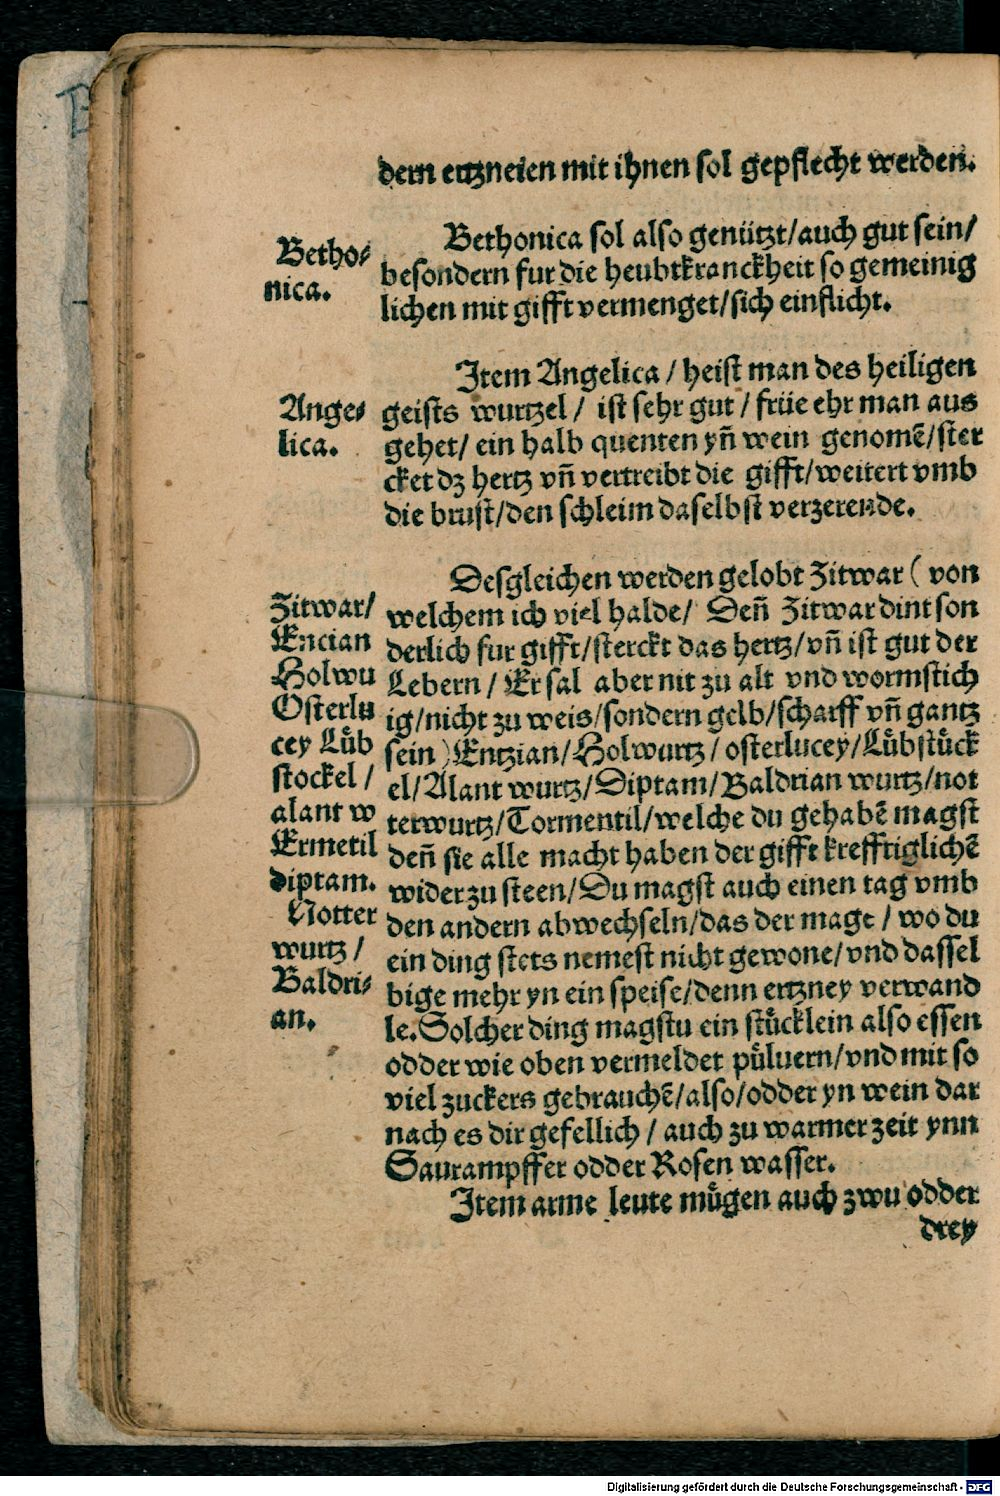 dern ertzneien mit ihnen sol gepflecht werden.
Betho⸗
nica.
Bethonica sol also genützt/auch gut sein/
besondern fur die heubtkranckheit so gemeinig
lichen mit gifft vermenget/sich einflicht.
Ange⸗
lica.
Item Angelica / heist man des heiligen
geists wurtzel / ist sehr gut / früe ehr man aus
gehet/ ein halb quenten yñ wein genomẽ/ster
cket dz hertz vñ vertreibt die gifft/weitert vmb
die brust/den schleim daselbst verzerende.
Zitwar/
Encian
Holwu
Osterlu
cey Lüb
stockel /
alant w
Ermetil
diptam.
Notter
wurtz /
Baldri⸗
an.
Desgleichen werden gelobt Zitwar ( von
welchem ich viel halde/ Deñ Zitwar dint son
derlich fur gifft/sterckt das hertz/vñ ist gut der
Lebern / Er sal aber nit zu alt vnd wormstich
ig/nicht zu weis/sondern gelb/scharff vñ gantz
sein ) Entzian/Holwurtz / osterlucey/Lübstück
el/Alant wurtz/Diptam/Baldrian wurtz/not
terwurtz/Tormentil/welche du gehabẽ magst
deñ sie alle macht haben der gifft krefftiglichẽ
wider zu steen/Du magst auch einen tag vmb
den andern abwechseln/das der mage / wo du
ein ding stets nemest nicht gewone/vnd dassel
bige mehr yn ein speise/denn ertzney verwand
le. Solcher ding magstu ein stücklein also essen
odder wie oben vermeldet püluern/vnd mit so
viel zuckers gebrauchẽ/also/odder yn wein dar
nach es dir gefellich / auch zu warmer zeit ynn
Saurampffer odder Rosen wasser.
Item arme leute mügen auch zwu odder
drey
Digitalisierung gefördert durch die Deutsche Forschungsgemeinschaft - DFG